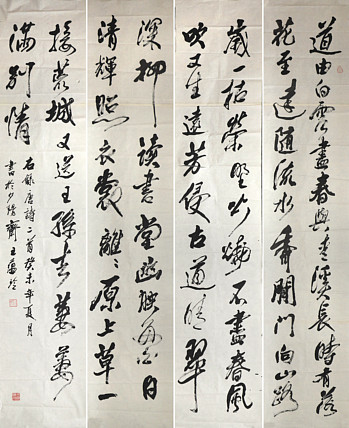 道由白雲盡春與青溪長時有落
花至遠隨流水香閒門向山路
歲一枯榮野火燒不盡春風
吹又生遠芳侵古道晴翠
深柳讀書堂幽映每白日
清輝照衣裳離〻原上草一
接荒城又送王孫去萋萋
滿別情
右錄唐詩二首癸未年夏月
書於